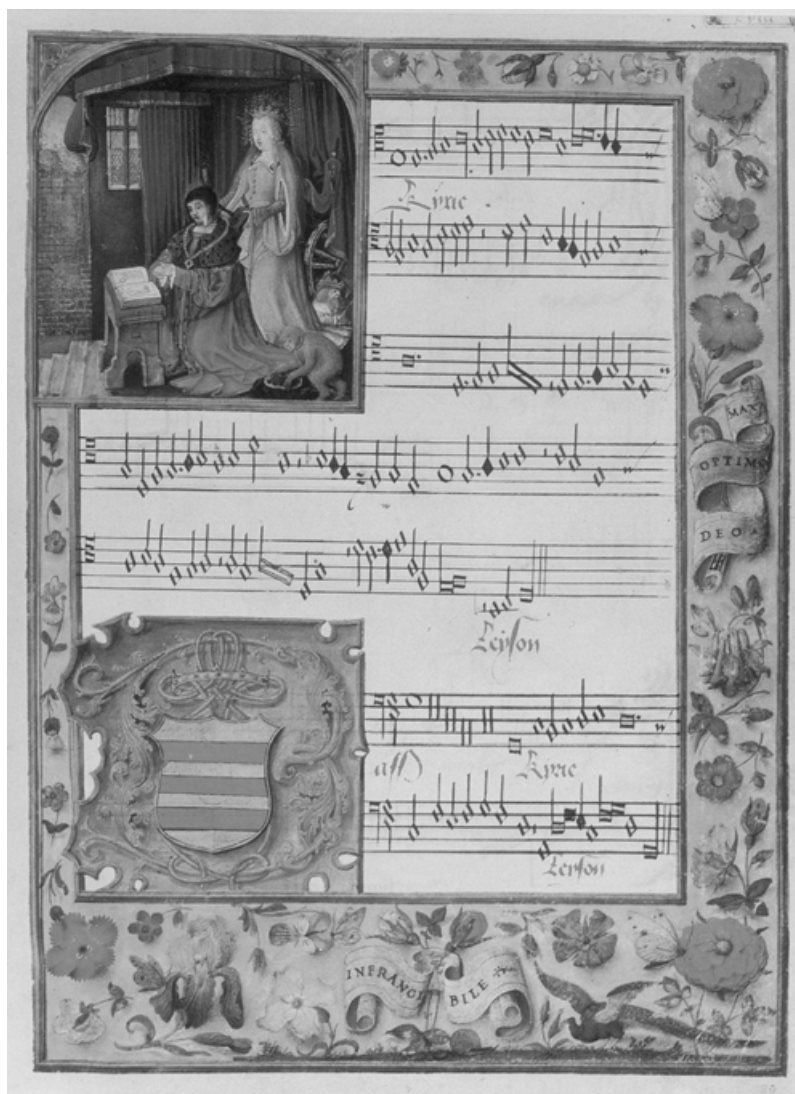 Kyrie
MAX
OPTIMO
DEO
Leyson
Kyrie
Leyson
INFRANGI BILE